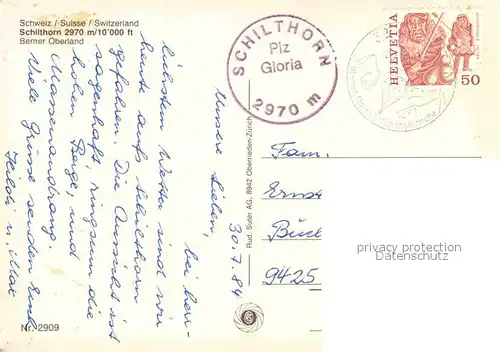 Schweiz / Suisse / Switzerland
Schilthorn 2970 m/10'000 ft
Berner Oberland
SCHILTHORN
Piz
Gloria
2970 m
HELVETIA
50
30.7.84
Unsere Lieben,
bei herr-
lichstem Wetter sind wir
heute aufs Schilthorn
gefahren. Die Aussicht ist
sagenhaft, ringsum die
hohen Berge, und
Massenandrang.
Viele Grüsse senden Euch
Heidi u. Max
Rud. Suter AG, 8942 Oberrieden-Zürich
Fam.
Ernst
9425
privacy protection
Datenschutz
Nr. 2909